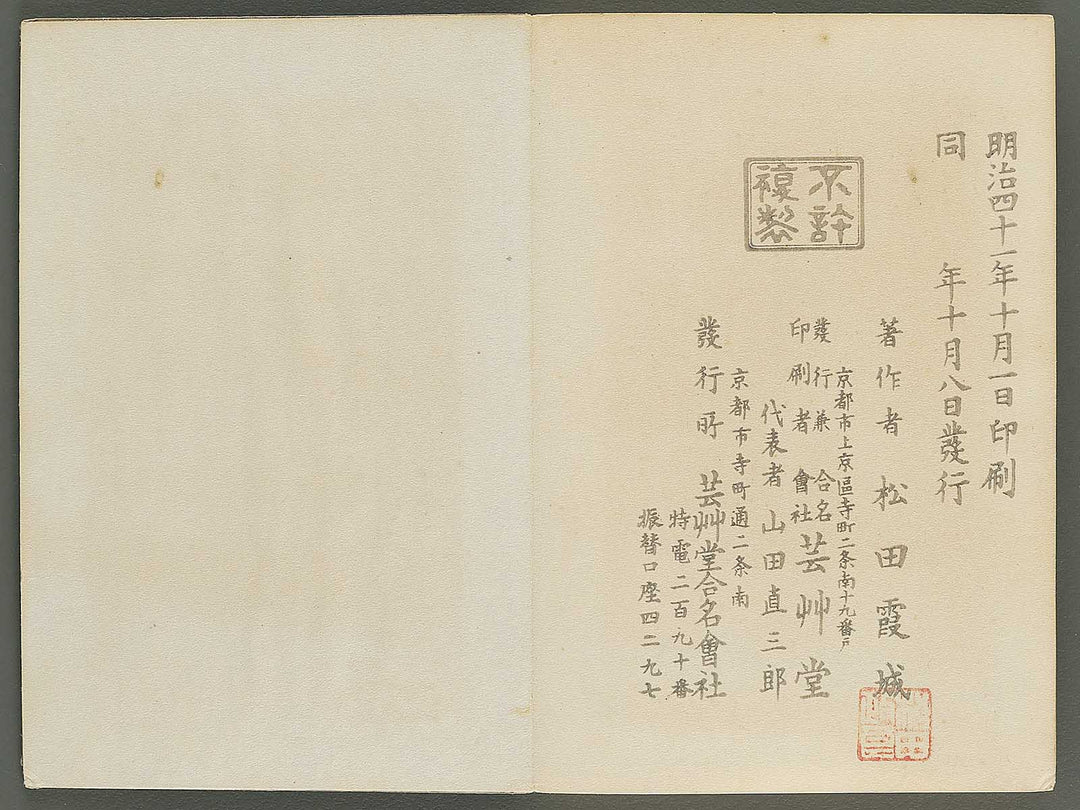 明治四十一年十月一日印刷
同 年十月八日發行
不許
複製
著作者 松田霞城
京都市上京區寺町二条南十九番戸
發行兼
印刷者
合名
會社
芸艸堂
代表者 山田直三郎
京都市寺町通二条南
發行所 芸艸堂合名會社
特電二百九十番
振替口座四二九七